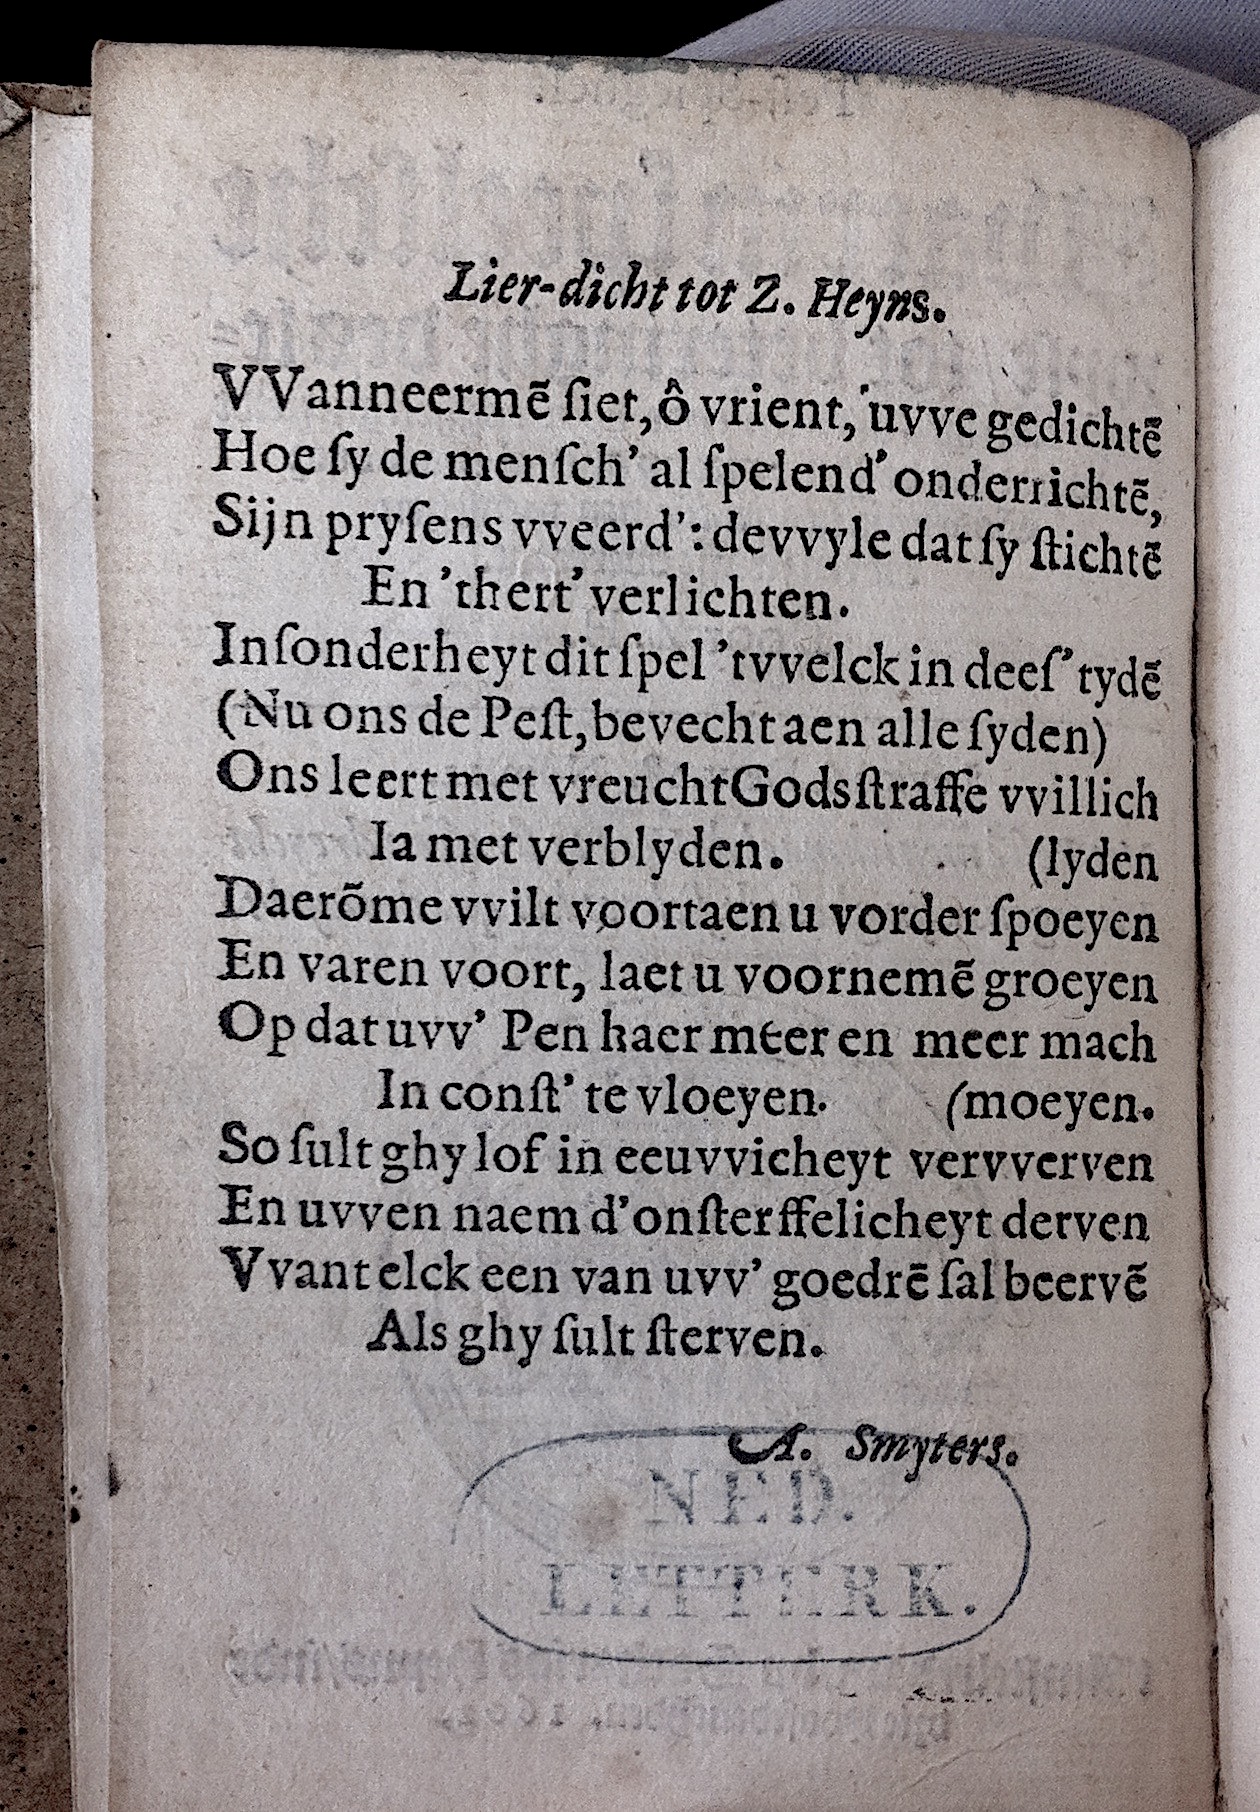 Lier-dicht tot Z. Heyns.
VVanneermẽ ſiet, ô vrient, 'uvve gedichtẽ
Hoe ſy de menſch' al ſpelend' onderrichtẽ,
Sijn pryſens vveerd': devvyle dat ſy ſtichtẽ
En 'thert' verlichten.
Inſonderheyt dit ſpel 'tvvelck in deeſ' tydẽ
(Nu ons de Peſt, bevecht aen alle ſyden)
Ons leert met vreucht Gods ſtraffe vvillich
Ia met verblyden. (lyden
Daerõme vvilt voortaen u vorder ſpoeyen
En varen voort, laet u voornemẽ groeyen
Op dat uvv' Pen haer meer en meer mach
In conſt' te vloeyen. (moeyen.
So ſult ghy lof in eeuvvicheyt vervverven
En uvven naem d'onſterffelicheyt derven
Vvant elck een van uvv' goedrẽ ſal beervẽ
Als ghy ſult ſterven.
A. Smyters.
NED.
LETTERK.